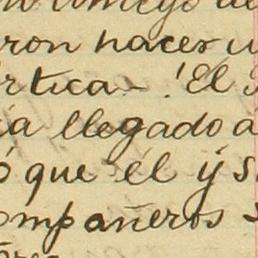 consejo de
ron hacer u
rtica - ! El
ia llegado a
ó que él y s
ompañeros s